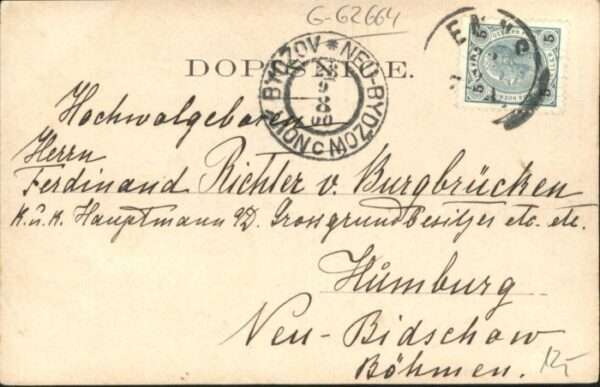 G-62664
DOPISNICE.
NEU-BYDŽOV * NOVÝ BYDŽOV
5 5
Hochwolgeboren
Herrn
Ferdinand Richter v. Burgbrücken
K. u. K. Hauptmann a/D. Grossgrundbesitzer etc. etc.
Humburg
Neu-Bidschow
Böhmen.
12,-